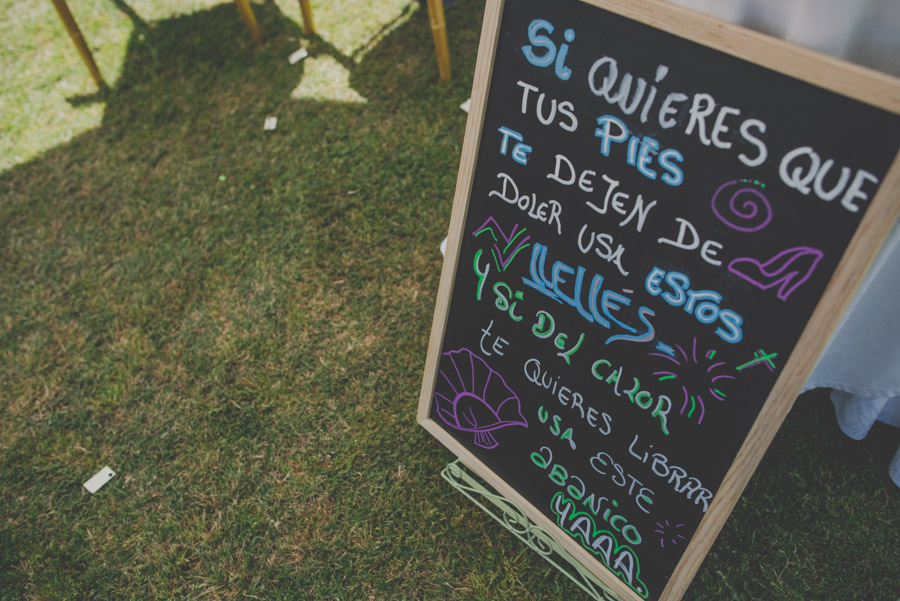 Si QUIERES QUE
TUS PIES
TE DEJEN DE
DOLER USA ESTOS
LLELLÉS
Y Si DEL CALOR
te QUIERES LIBRAR
USA ESTE
abaNico
YAAA.